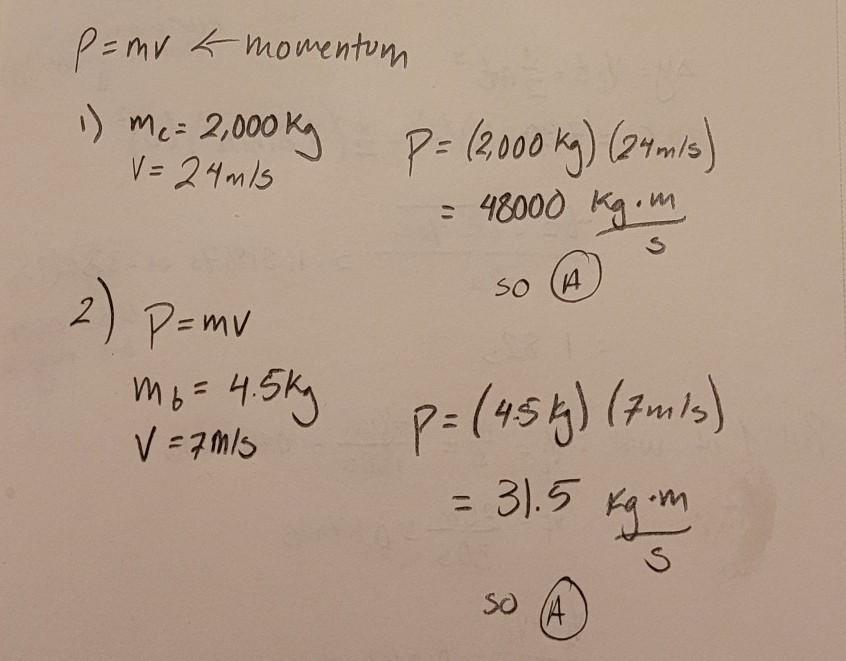 P = mv ← momentum
1) mc = 2,000 Kg
V = 24 m/s
P = (2,000 Kg) (24 m/s)
= 48000 Kg·m/s
so A
2) P = mV
mb = 4.5 Kg
V = 7 m/s
P = (4.5 Kg) (7 m/s)
= 31.5 Kg·m/s
so A